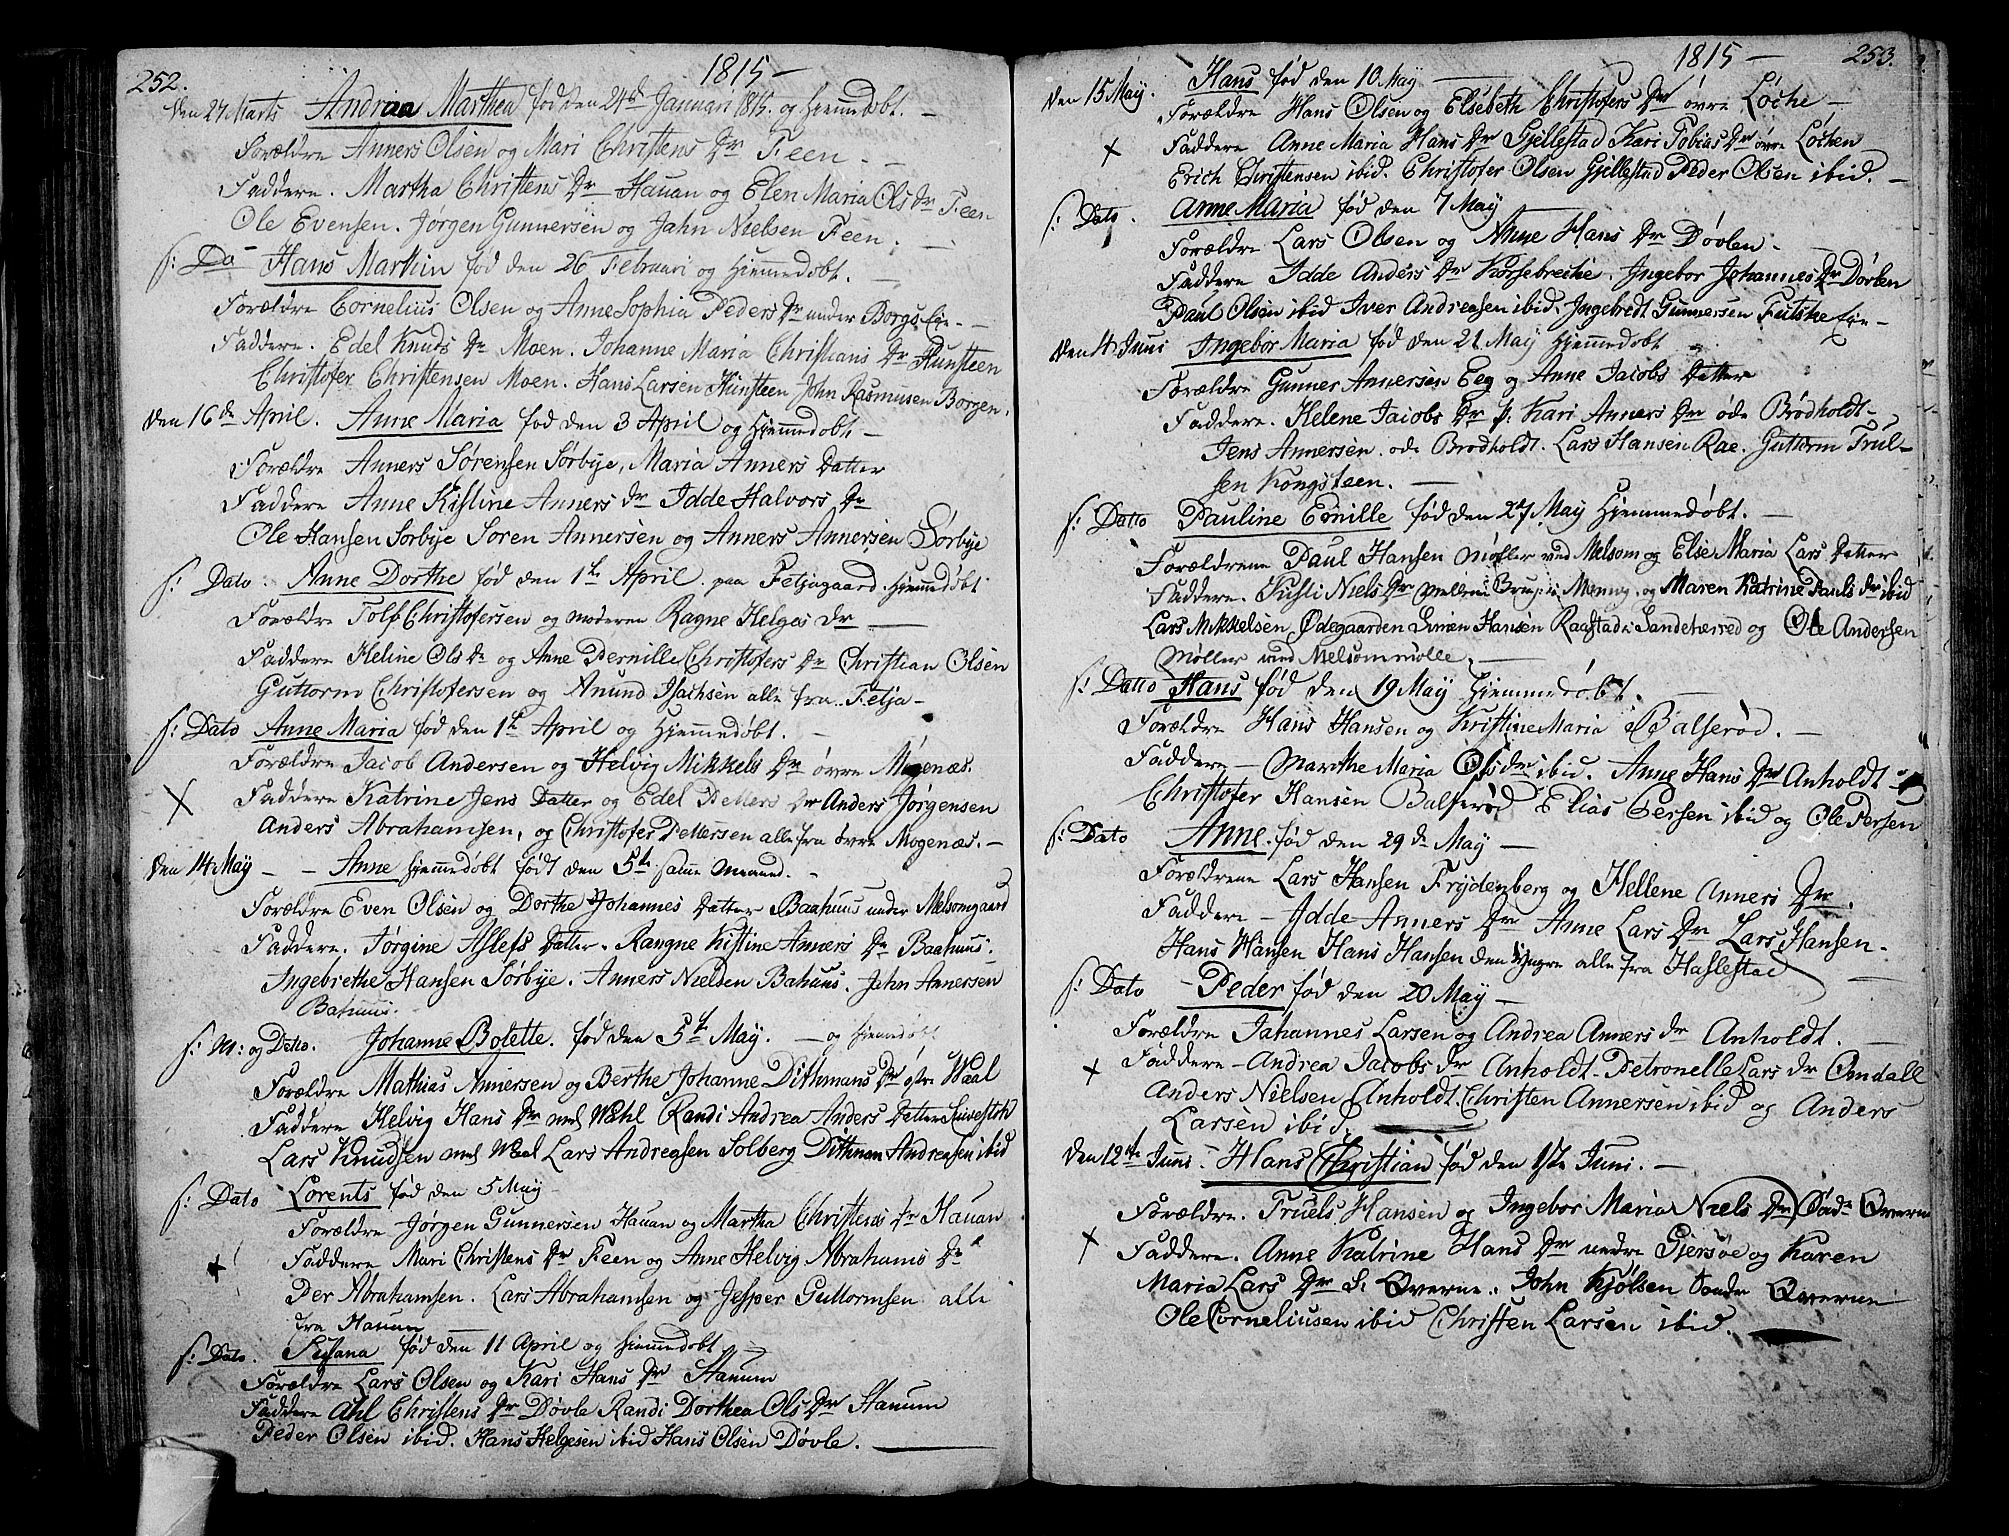 252.
1815 —
den 27 Marts Andrea Marthea fød den 24de Januari 1815. og Hjemmedøbt. —
Forældre Anners Olsen og Mari Christens Dr Feen. —
Faddere. Martha Christens Dr Hauan og Elen Maria Ols Dr Feen
Ole Evensen. Jørgen Gunnersen og Jahn Nielsen Feen. —
f: Do — Hans Martin fød den 26 Februari og Hjemmedøbt. —
Forældre Cornelius Olsen og Anne Sophia Peders Dr under Borgs Eie. —
Faddere. Edel Knuds Dr Moen. Johanne Maria Christians Dr Hunsteen
Christofer Christensen Moen. Hans Larsen Hunsteen John Rasmusen Borgen.
den 16de April. Anne Maria fød den 3 April og Hjemmedøbt —
Forældre Anners Sørensen Sørbye, Maria Anners Datter
Faddere Anne Kistine Anners Dr Idde Halvors Dr
Ole Hansen Sørbye Søren Annersen og Anners Annersen Sørbye
f: Dato. Anne Dorthe fød den 1te April. paa Fetjagaard. Hjemmedøbt
Forældre Tolf Christofersen og moderen Ragne Helges Dr —
Faddere Heline Ols Dr og Anne Pernille Christofers Dr Christian Olsen
Guttorm Christofersen og Anund Isachsen alle fra Fetja —
f: Dato Anne Maria fød den 1te April og Hjemmedøbt. —
Forældre Jacob Andersen og Helvig Mikkels Dr øvre Mogenæs.
X Faddere Katrine Jens Datter og Edel Petters Dr Anders Jørgensen
Anders Abrahamsen, og Christofer Pettersen alle fra øvre Mogenæs. —
den 14 May — — Anne Hjemmedøbt født den 5te samme Maaned. —
Forældre Even Olsen og Dorthe Johannes Datter Baahuus under Melsomgaard
Faddere. Jørgine Aslefs Datter. Rangne Kistine Anners Dr Baahuus.
Ingebrethe Hansen Sørbye. Anners Nielsen Bahuus. John Annersen
Bahuus.
f: M: og Datto. Johanne Bolette. fød den 5te May. — og Hjemmedøbt
Forældre Mathias Annersen og Berthe Johanne Dithmans Dr østre Waal
Faddere Helvig Hans Dr Wahl Randi Andrea Anders Datter
Lars Knudsen Waal Lars Andreasen Solberg Dithman Andreasen ibid
f: Dato Lorents fød den 5 May
Forældre Jørgen Gunnersen Hauan og Martha Christens Dr Hauan
+ Faddere Mari Christens Dr Feen og Anne Helvig Abrahams Dr
Per Abrahamsen. Lars Abrahamsen og Jesper Guttormsen alle
fra Hauan —
f: Dato. Susana fød den 11 April og Hjemmedøbt —
Forældre Lars Olsen og Kari Hans Dr Hanum
Faddere Ahl Christens Dr Døvle Randi Dorthea Ols Dr Hanum
Peder Olsen ibid. Hans Helgesen ibid Hans Olsen Døvle. —
1815 — 253.
den 15 May. Hans fød den 10 May —
Forældre Hans Olsen og Elsebeth Christofers Dr øvre Løche —
X Faddere Anne Maria Hans Dr Gjellestad Kari Tobias Dr øvre Løchen
Erich Christensen ibid. Christofer Olsen Gjellestad Peder Olsen ibid. —
f: Dato. Anne Maria fød den 7 May
Forældre Lars Olsen og Anne Hans Dr Døvlen. —
Faddere Idde Anders Dr Korsebreche. Ingebor Johannes Dr Dørlen
Paul Olsen ibid Iver Andreasen ibid. Ingebredt Gunnersen Futske Eie —
den 4 Juni Ingebor Maria fød den 21 May Hjemmedøbt
Forældre Gunner Annersen Eeg og Anne Jacobs Datter
Faddere. Helene Jacobs Dr Kari Anners Dr øde Brødholdt —
Jens Annersen. ode Brødholdt. Lars Hansen Rae. Guttorm Trul-
sen Kongsteen. —
f: Datto Pauline Ernille fød den 27 May Hjemmedøbt. —
Forældrene Paul Hansen Møller ved Melsom og Else Maria Lars Datter
Faddere. Kisti Niels Dr og Maren Katrine Pauls Dr ibid
Lars Mikkelsen Ødegaarden Simen Hansen Raastad i Sandeherred og Ole Andersen
Møller ved Melsommølle. —
f: Datto Hans fød den 19 May Hjemmedøbt. —
Forældre Hans Hansen og Kristine Maria Balserød. —
Faddere — Marthe Maria Ols Dr ibid. Anne Hans Dr Anholdt —
Christofer Hansen Balserød Elias Persen ibid og Ole Persen
f: Dato Anne. fød den 29de May —
Forældrene Lars Hansen Frydenberg og Hellene Anners Dr.
Faddere — Idde Anners Dr Anne Lars Dr Lars Hansen.
Hans Hansen Hans Hansen den yngre alle fra Haslestad —
f: Dato — Peder fød den 20 May —
Forældre Johannes Larsen og Andrea Anners Dr Anholdt. —
X Faddere — Andrea Jacobs Dr Anholdt. Petronelle Lars Dr Omdall
Anders Nielsen Anholdt. Christen Annersen ibid og Anders
Larsen ibid. —
den 12te Juni. Hans Christian fød den 1ste Juni. —
Forældre. Truels Hansen og Ingebor Maria Niels Dr Søde Qverne
X Faddere. Anne Katrine Hans Dr nedre Giersøe og Karen
Maria Lars Dr S. Qverne. John Kjølsen Søndre Qverne
Ole Corneliusen ibid Christen Larsen ibid. —